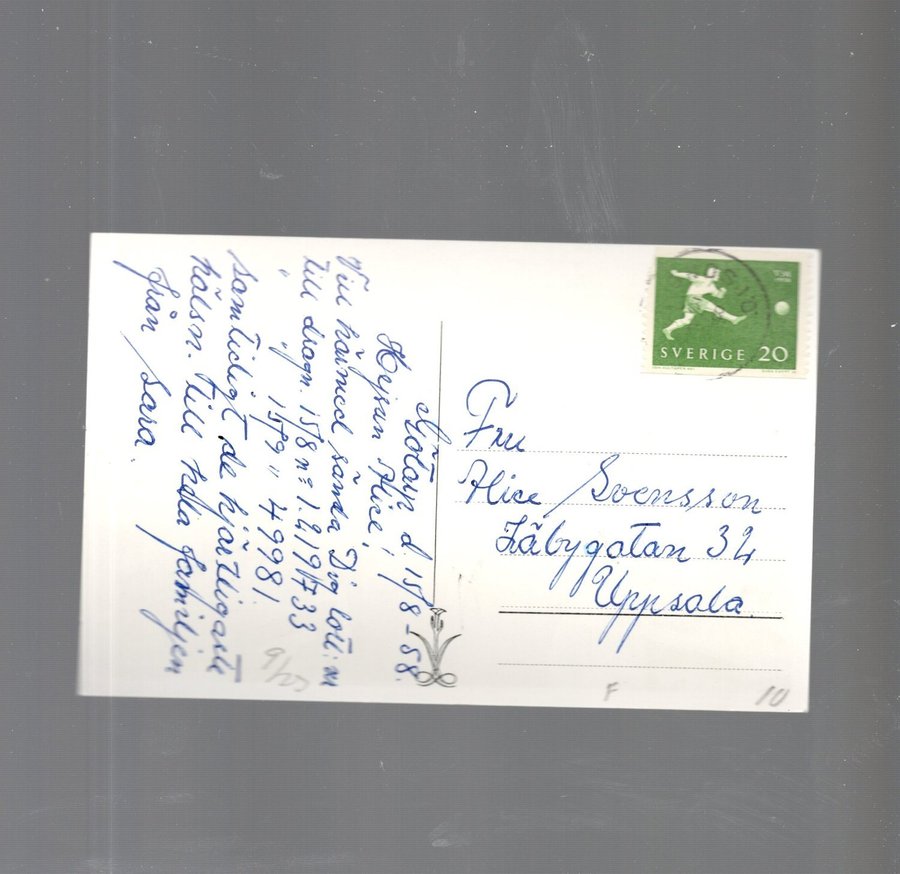 d. 15/8 -58.
Hejsan Alice!
Vill härmed sända Dig lott:n
till dragn. 15/8 nº 1.219733
" " 15/9 " 49981
samtidigt de hjärtligaste
hälsn. till hela familjen
från Sara.
9/25
SVERIGE 20
Fru
Alice Svensson
Zäbygatan 32
Uppsala.
F
10